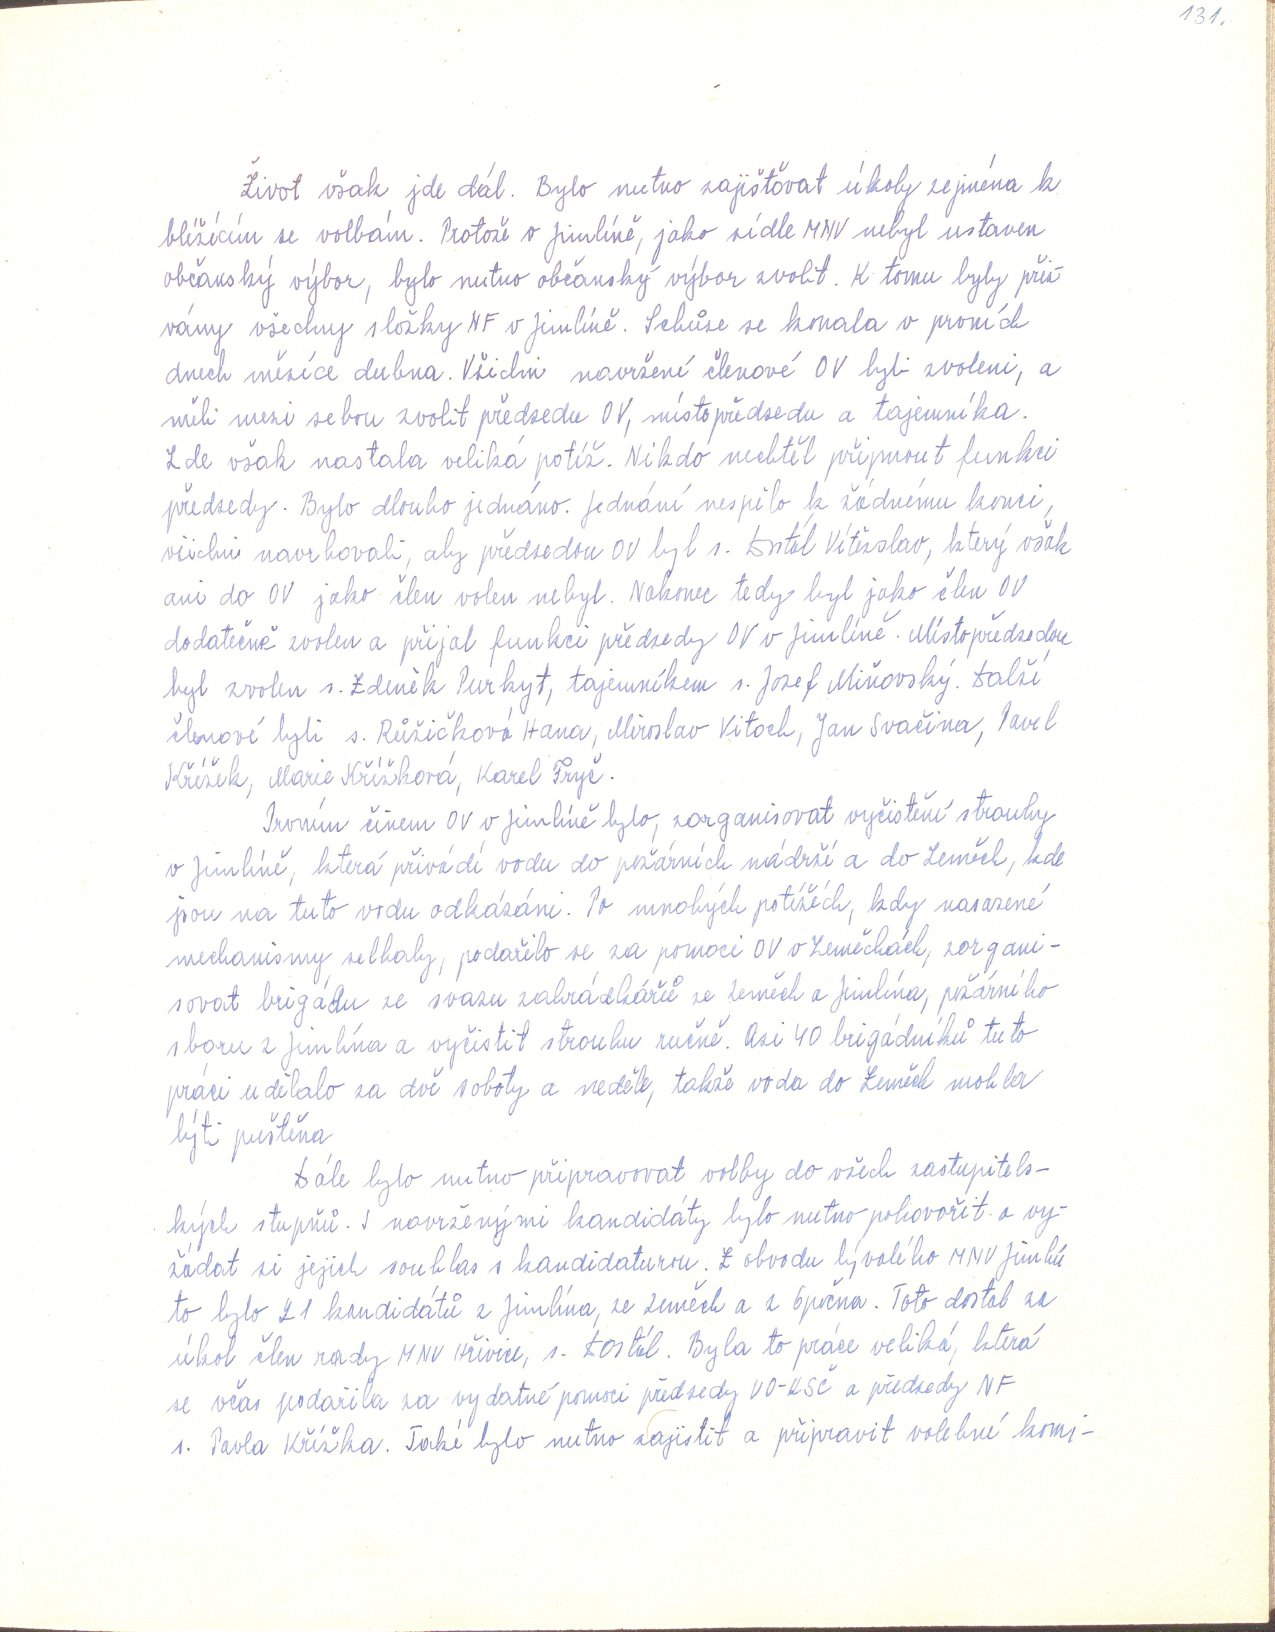 131.
Život však jde dál. Bylo nutno zajišťovat úkoly zejména k
blížícím se volbám. Protože v Jimlíně, jako sídle MNV nebyl ustaven
občanský výbor, bylo nutno občanský výbor zvolit. K tomu byly při-
zvány všechny složky NF v Jimlíně. Schůze se konala v prvních
dnech měsíce dubna. Všichni navržení členové OV byli zvoleni, a
měli mezi sebou zvolit předsedu OV, místopředsedu a tajemníka.
Zde však nastala veliká potíž. Nikdo nechtěl přijmout funkci
předsedy. Bylo dlouho jednáno. Jednání nespělo k žádnému konci,
všichni navrhovali, aby předsedou OV byl s. Dostál Vítězslav, který však
ani do OV jako člen volen nebyl. Nakonec tedy byl jako člen OV
dodatečně zvolen a přijal funkci předsedy OV v Jimlíně. Místopředsedou
byl zvolen s. Zdeněk Purkyt, tajemníkem s. Josef Miňovský. Další
členové byli s. Růžičková Hana, Miroslav Vitoch, Jan Svačina, Pavel
Křížek, Marie Křížková, Karel Fryč.
Prvním činem OV v Jimlíně bylo, zorganisovat vyčistění strouhy
v Jimlíně, která přivádí vodu do požárních nádrží a do Zeměch, kde
jsou na tuto vodu odkázáni. Po mnohých potížích, kdy nasazené
mechanismy selhaly, podařilo se za pomoci OV v Zeměchách, zorgani-
sovat brigádu ze svazu zahrádkářů ze Zeměch a Jimlína, požárního
sboru z Jimlína a vyčistit strouhu ručně. Asi 40 brigádníků tuto
práci udělalo za dvě soboty a neděle, takže voda do Zeměch mohla
býti puštěna
Dále bylo nutno připravovat volby do všech zastupitels-
kých stupňů. S navrženými kandidáty bylo nutno pohovořit a vy-
žádat si jejich souhlas s kandidaturou. Z obvodu bývalého MNV Jimlín
to bylo 21 kandidátů z Jimlína, ze Zeměch a z Opočna. Toto dostal za
úkol člen rady MNV Hřivice, s. Dostál. Byla to práce veliká, která
se včas podařila za vydatné pomoci předsedy VO-KSČ a předsedy NF
s. Pavla Křížka. Také bylo nutno zajistit a připravit volební komi-